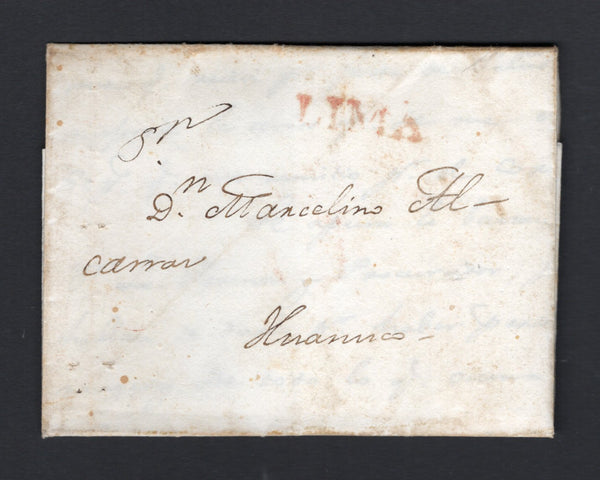 LIMA
Sr
Dn. Marcelino Al-
carraz
Huanuco-